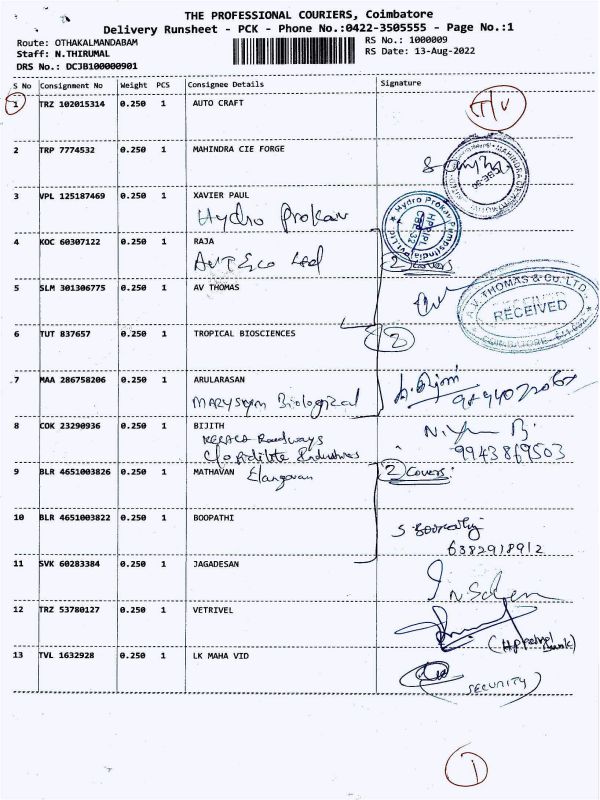 THE PROFESSIONAL COURIERS, Coimbatore
Delivery Runsheet - PCK - Phone No.:0422-3505555 - Page No.:1
Route: OTHAKALMANDABAM RS No.: 1000009
Staff: N.THIRUMAL RS Date: 13-Aug-2022
DRS No.: DCJB100000901
S No Consignment No Weight PCS Consignee Details Signature
1 TRZ 102015314 0.250 1 AUTO CRAFT
2 TRP 7774532 0.250 1 MAHINDRA CIE FORGE
3 VPL 125187469 0.250 1 XAVIER PAUL
Hydro Prokav
4 KOC 60307122 0.250 1 RAJA
2 Covers
5 SLM 301306775 0.250 1 AV THOMAS
A.V. THOMAS & CO. LTD.
RECEIVED
6 TUT 837657 0.250 1 TROPICAL BIOSCIENCES
7 MAA 286758206 0.250 1 ARULARASAN
Biological
8 COK 23290936 0.250 1 BIJITH
Roadways
c/o pidilite Industries
9943869503
9 BLR 4651003826 0.250 1 MATHAVAN
Elangovan
2 Covers
10 BLR 4651003822 0.250 1 BOOPATHI
6382918912
11 SVK 60283384 0.250 1 JAGADESAN
12 TRZ 53780127 0.250 1 VETRIVEL
13 TVL 1632928 0.250 1 LK MAHA VID
(SECURITY)
1